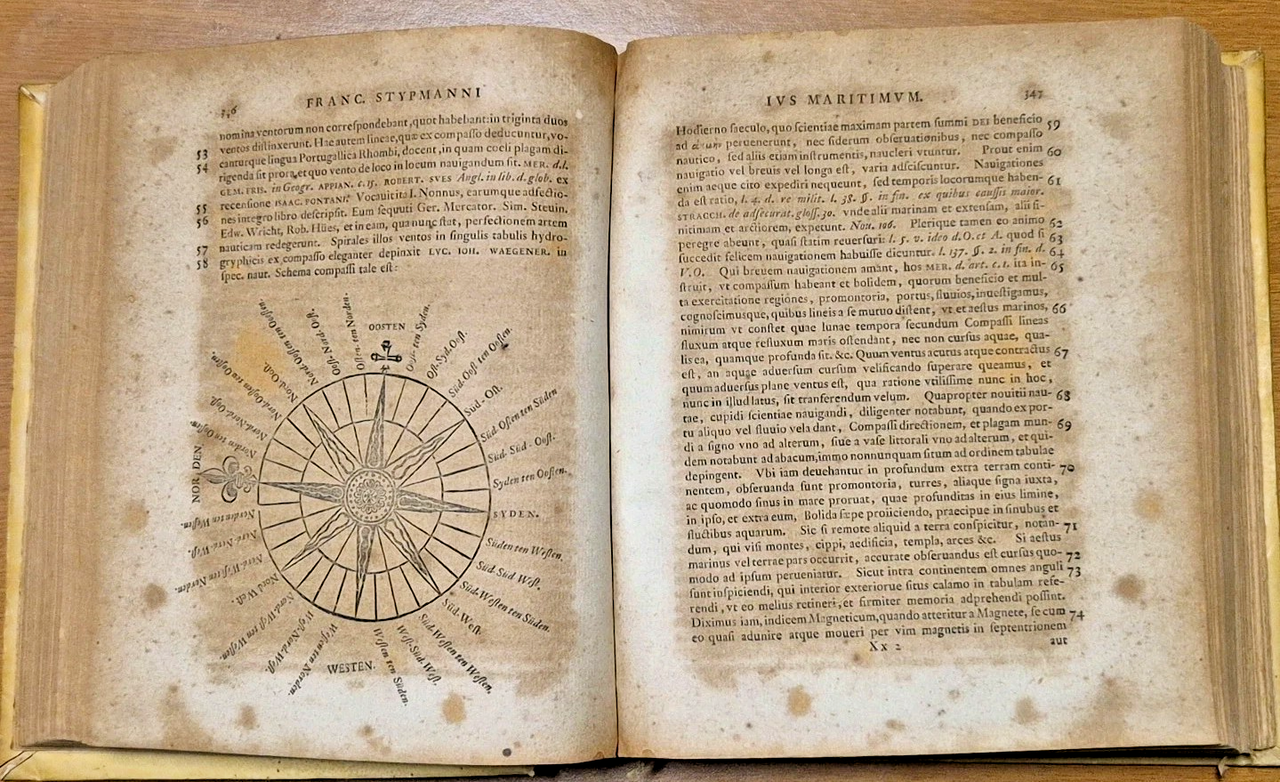 346
FRANC. STYPMANNI
nomina ventorum non correspondebant, quot habebant: in triginta duos
ventos distinxerunt. Hae autem lineae, quae ex compasso deducuntur, vo-
53 cantur que lingua Portugallica Rhombi, docent, in quam coeli plagam di-
54 rigenda sit prora, et quo vento de loco in locum nauigandum sit. MER. d. l.
GEM. FRIS. in Geogr. APPIAN. c. 15. ROBERT. SVES Angl. in lib. d. glob. ex
recensione ISAAC. PONTANI. Vocauit ita I. Nonnus, earumque adfectio-
55 nes integro libro descripsit. Eum sequuti Ger. Mercator. Sim. Steuin.
56 Edw. Wricht, Rob. Hües, et in eam, qua nunc stat, perfectionem artem
nauticam redegerunt. Spirales illos ventos in singulis tabulis hydro-
57 gryphicis ex compasso eleganter depinxit LVC. IOH. WAEGENER. in
58 spec. naut. Schema compassi tale est:
OOSTEN
Osten ten Norden.
Oost-Nord-Ost.
Nord-Osten ten Oosten
Nord-Oost.
Nord-Osten ten Norden.
Nord-Nord-Oost.
Norden ten Oosten.
NORDEN
Norden ten Westen.
Nord-Nord-West.
Nord-Westen ten Norden.
Nord West.
Nord-Westen ten Westen.
West-Nord-West.
Westen ten Norden.
WESTEN.
Westen ten Süden.
West-Süd-West.
Süd-Westen ten Westen.
Süd-West.
Süd-Westen ten Süden.
Süd-Süd West.
Süden ten Westen.
SYDEN.
Syden ten Oosten.
Süd-Süd-Oost.
Süd-Osten ten Süden
Süd-Ost.
Süd-Oost ten Oosten.
Ost-Syd-Oost.
Oosten ten Syden.
IVS MARITIMVM.
347
Hodierno saeculo, quo scientiae maximam partem summi DEI beneficio 59
ad peruenerunt, nec siderum obseruationibus, nec compasso
nautico, sed aliis etiam instrumentis, naucleri vtuntur. Prout enim 60
nauigatio vel breuis vel longa est, varia adsciscuntur. Nauigationes
enim aeque cito expediri nequeunt, sed temporis locorumque haben- 61
da est ratio, l. 4. d. re milit. l. 38. §. in fin. ex quibus caussis maior.
STRACCH. de adsecurat. gloss. 30. vnde alii marinam et extensam, alii si-
nitimam et arctiorem, expetunt. Non. 106. Plerique tamen eo animo 62
peregre abeunt, quasi statim reuersuri: l. 5. v. ideo d. O. et A. quod si 63
succedit felicem nauigationem habuisse dicuntur. l. 137. §. 2. in fin. d. 64
V. O. Qui breuem nauigationem amant, hos MER. d. art. c. 1. ita in- 65
struit, vt compassum habeant et bolidem, quorum beneficio et mul-
ta exercitatione regiones, promontoria, portus, fluuios, inuestigamus,
cognoscimusque, quibus lineis a se mutuo distent, vt et aestus marinos, 66
nimirum vt constet quae lunae tempora secundum Compassi lineas
fluxum atque refluxum maris ostendant, nec non cursus aquae, qua-
lis ea, quamque profunda sit. &c. Quum ventus acutus atque contractus 67
est, an aquae aduersum cursum velificando superare queamus, et
quum aduersus plane ventus est, qua ratione vtilissime nunc in hoc,
nunc in illud latus, sit tranferendum velum. Quapropter nouitii nau- 68
tae, cupidi scientiae nauigandi, diligenter notabunt, quando ex por-
tu aliquo vel fluuio vela dant, Compassi directionem, et plagam mun- 69
di a signo vno ad alterum, siue a vase littorali vno ad alterum, et qui-
dem notabunt ad abacum, immo nonnunquam situm ad ordinem tabulae
depingent. Vbi iam deuehantur in profundum extra terram conti- 70
nentem, obseruanda sunt promontoria, turres, aliaque signa iuxta,
ac quomodo sinus in mare proruat, quae profunditas in eius limine,
in ipso, et extra eum, Bolida saepe proiiciendo, praecipue in sinubus et
fluctibus aquarum. Sic si remote aliquid a terra conspicitur, notan- 71
dum, qui visi montes, cippi, aedificia, templa, arces &c. Si aestus
marinus vel terrae pars occurrit, accurate obseruandus est cursus quo- 72
modo ad ipsum perueniatur. Sicut intra continentem omnes anguli 73
sunt inspiciendi, qui interior exteriorue situs calamo in tabulam refe-
rendi, vt eo melius retineri, et firmiter memoria adprehendi possint.
Diximus iam, indicem Magneticum, quando atteritur a Magnete, se cum 74
eo quasi adunire atque moueri per vim magnetis in septentrionem
Xx 2
aut